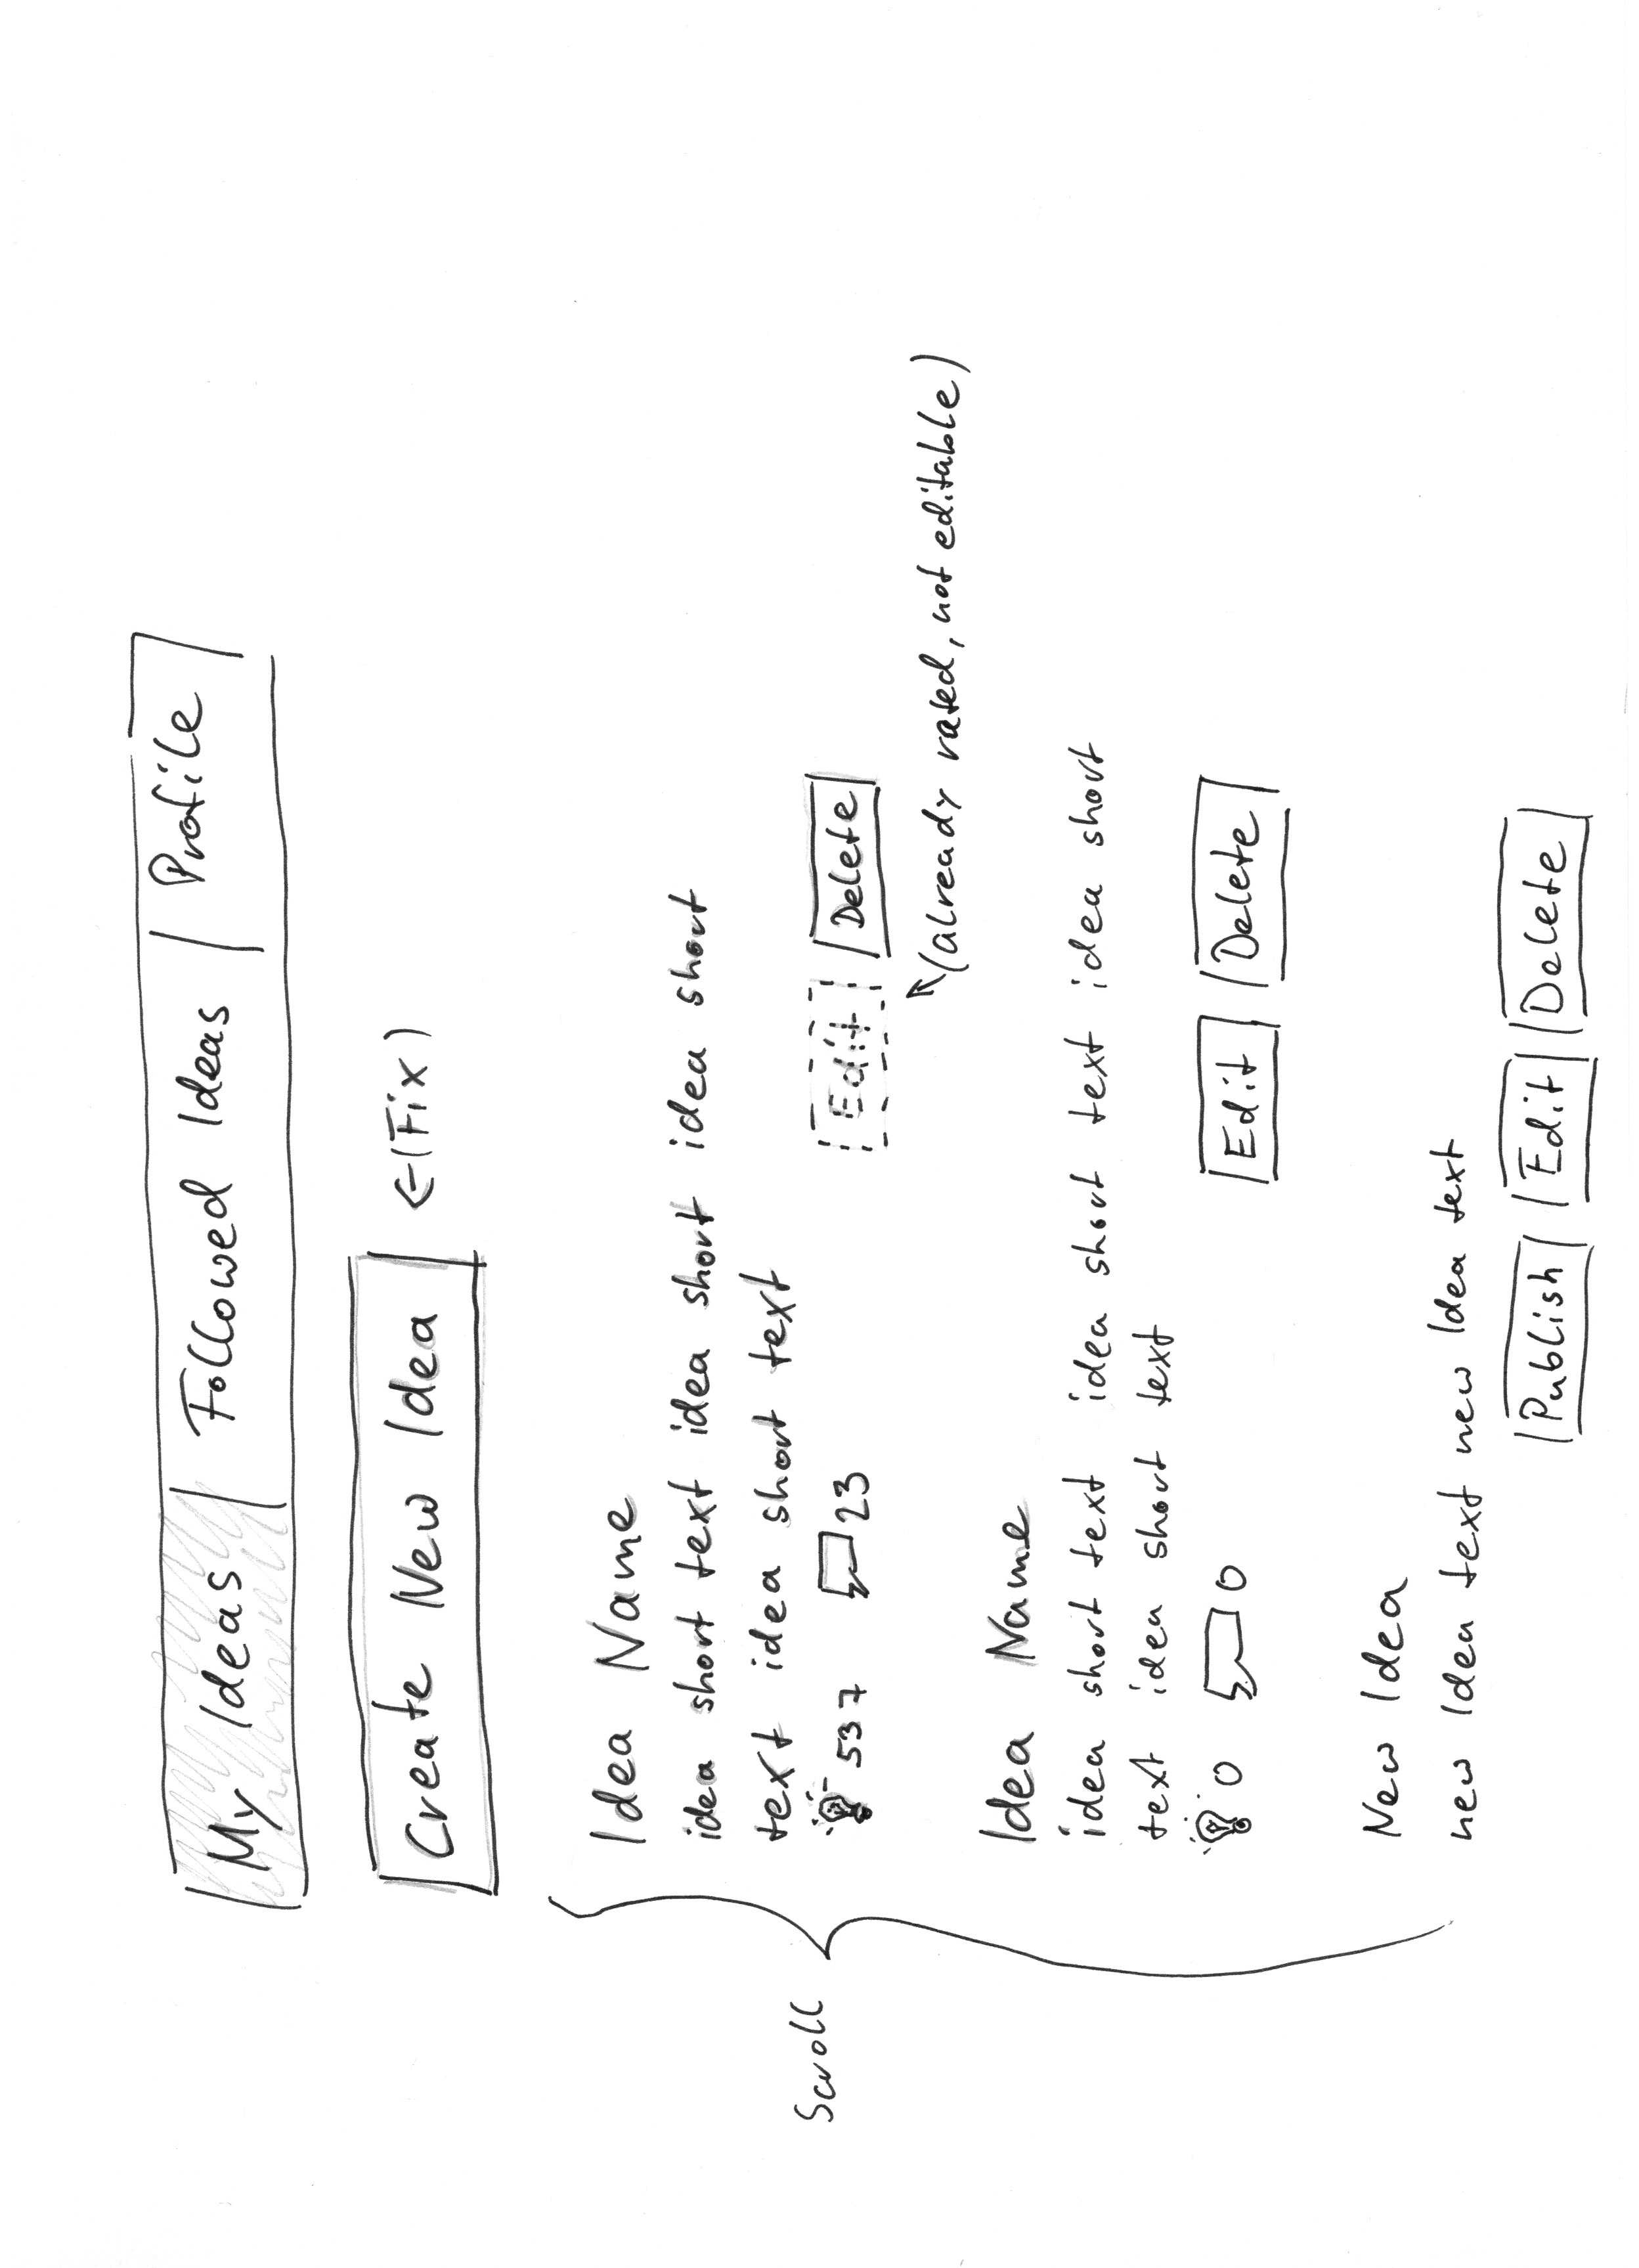 My Ideas Followed Ideas Profile
Create New Idea ←(Fix)
Idea Name
idea short text idea short idea short
text idea short text
Scroll
537 23 Edit Delete
(already rated, not editable)
Idea Name
idea short text idea short text idea short
text idea short text
0 0 Edit Delete
New Idea
new Idea text new Idea text
Publish Edit Delete